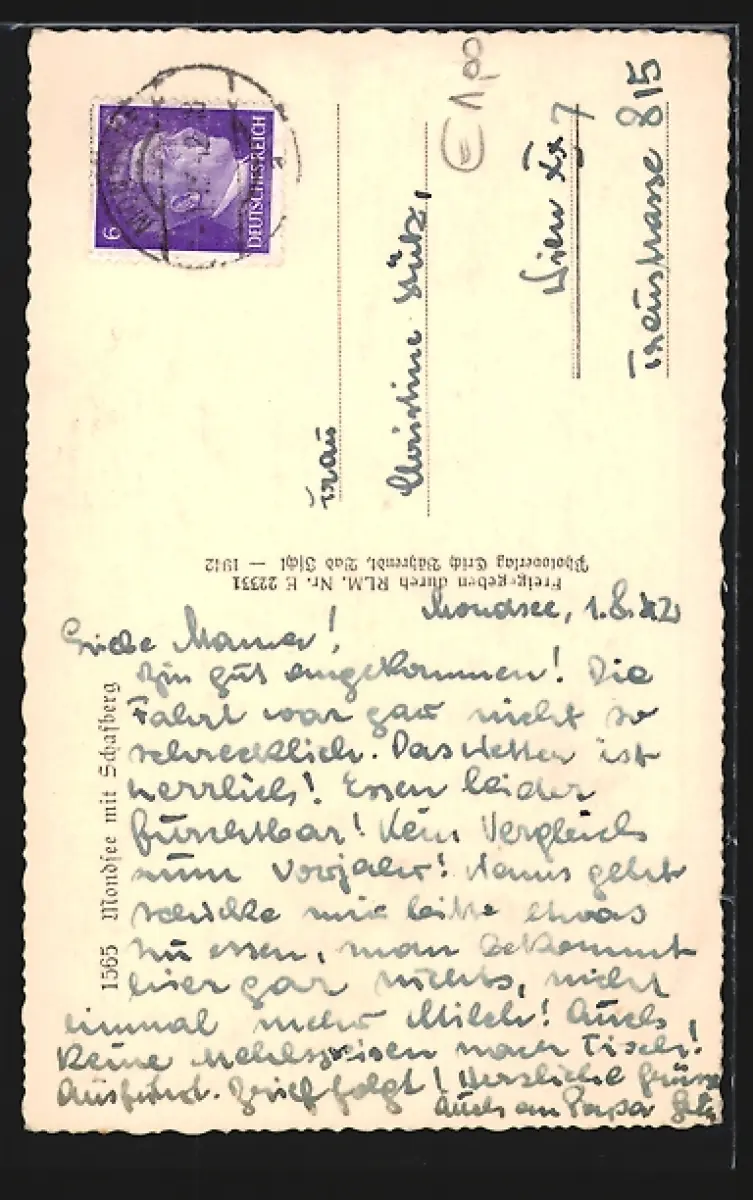 6
DEUTSCHES REICH
€ 1,00
Frau
Christine
Wien XX, 7
Traunstrasse 815
Freigegeben durch RLM. Nr. E 22331
Photoverlag Erich Bährendt, Bad Ischl — 1942
1565 Mondsee mit Schafberg
Mondsee, 1.8.42
Liebe Mama!
Bin gut angekommen! Die
Fahrt war gar nicht so
schrecklich. Das Wetter ist
herrlich! Essen leider
furchtbar! Kein Vergleich
zum Vorjahr! Wenns geht
schicke mir bitte etwas
zu essen, man bekommt
hier gar nichts, nicht
einmal mehr Milch! Auch
keine Mehlspeisen nach Tisch!
Ausführl. Brief folgt! Herzliche Grüsse
Auch an Papa